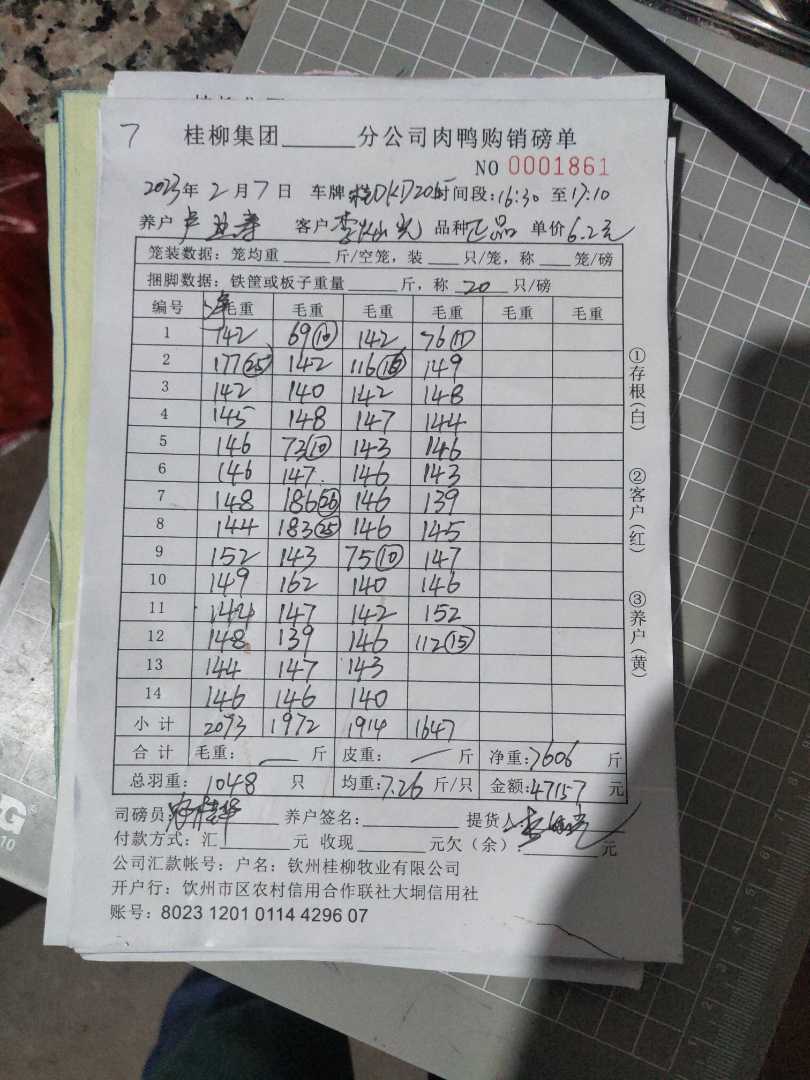 7 桂柳集团 分公司肉鸭购销磅单
NO 0001861
2023年 2 月 7 日 车牌 时间段:16:30 至 17:10
养户 客户 品种 正品 单价 6.2元
笼装数据: 笼均重 斤/空笼, 装 只/笼, 称 笼/磅
捆脚数据: 铁筐或板子重量 斤, 称 20 只/磅
编号 净重 毛重 毛重 毛重 毛重 毛重
1 142 69(10) 142 76(11)
2 177(25) 142 116(16) 149
3 142 140 142 148
4 145 148 147 144
5 146 73(10) 143 146
6 146 147 146 143
7 148 186(26) 146 139
8 144 183(25) 146 145
9 152 143 75(10) 147
10 149 162 140 146
11 144 147 142 152
12 148 139 146 112(15)
13 144 147 143
14 146 146 140
小计 2073 1972 1914 1647
合计 毛重: — 斤 皮重: — 斤 净重:7606 斤
总羽重: 1048 只 均重:7.26 斤/只 金额:47157 元
司磅员: 养户签名: 提货人:
付款方式: 汇 元 收现 元欠(余): 元
公司汇款帐号: 户名: 钦州桂柳牧业有限公司
开户行: 饮州市区农村信用合作联社大垌信用社
账号: 8023 1201 0114 4296 07
①存根(白)
②客户(红)
③养户(黄)